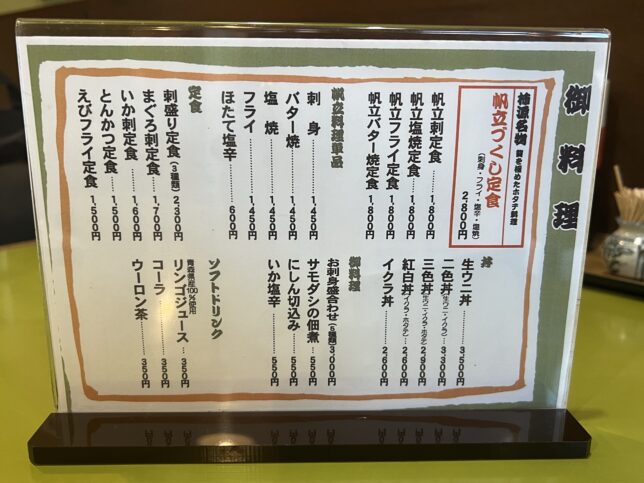 御料理
柿源名物 貝を極めたホタテ料理
帆立づくし定食
(刺身・フライ・塩辛・塩焼)
2,800円
帆立刺定食……1,800円
帆立塩焼定食……1,800円
帆立フライ定食……1,800円
帆立バター焼定食……1,800円
帆立料理単品
刺身……1,450円
バター焼……1,450円
塩焼……1,450円
フライ……1,450円
ほたて塩辛……600円
定食
刺盛り定食(3種類)…2,300円
まぐろ刺定食……1,700円
いか刺定食……1,600円
とんかつ定食……1,500円
えびフライ定食……1,500円
丼
生ウニ丼……3,500円
二色丼(生ウニ・イクラ)…3,300円
三色丼(生ウニ・イクラ・ホタテ)2,900円
紅白丼(イクラ・ホタテ)…2,600円
イクラ丼……2,600円
御料理
お刺身盛合わせ(5種類)3,000円
サモダシの佃煮……550円
にしん切込み……550円
いか塩辛……550円
ソフトドリンク
青森県産100%使用
リンゴジュース……350円
コーラ……350円
ウーロン茶……350円